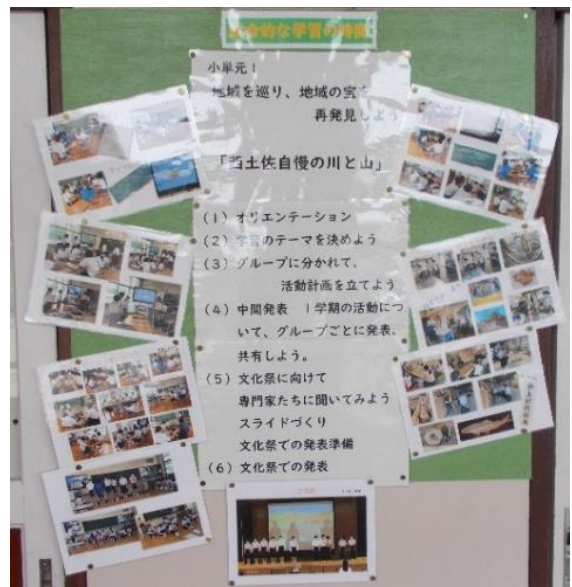 総合的な学習の時間
小単元1
地域を巡り、地域の宝を
再発見しよう
「西土佐自慢の川と山」
(1) オリエンテーション
(2) 学習のテーマを決めよう
(3) グループに分かれて、
活動計画を立てよう
(4) 中間発表　1学期の活動につ
いて、グループごとに発表、
共有しよう。
(5) 文化祭に向けて
専門家たちに聞いてみよう
スライドづくり
文化祭での発表準備
(6) 文化祭での発表